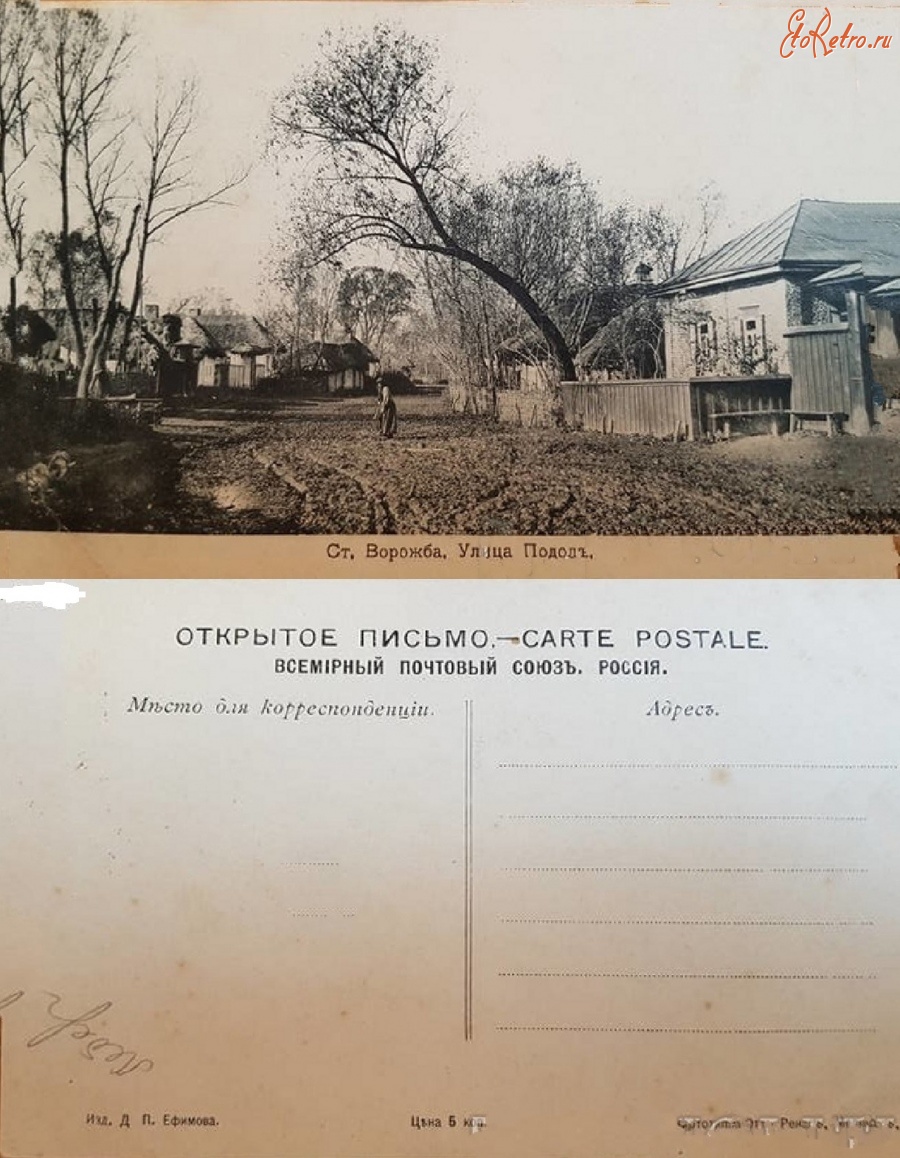 EtoRetro.ru
Ст. Ворожба. Улица Подолъ.
ОТКРЫТОЕ ПИСЬМО.—CARTE POSTALE.
ВСЕМІРНЫЙ ПОЧТОВЫЙ СОЮЗЪ. РОССІЯ.
Мѣсто для корреспонденціи.
Адресъ.
Изд. Д П. Ефимова.
Цѣна 5 коп.